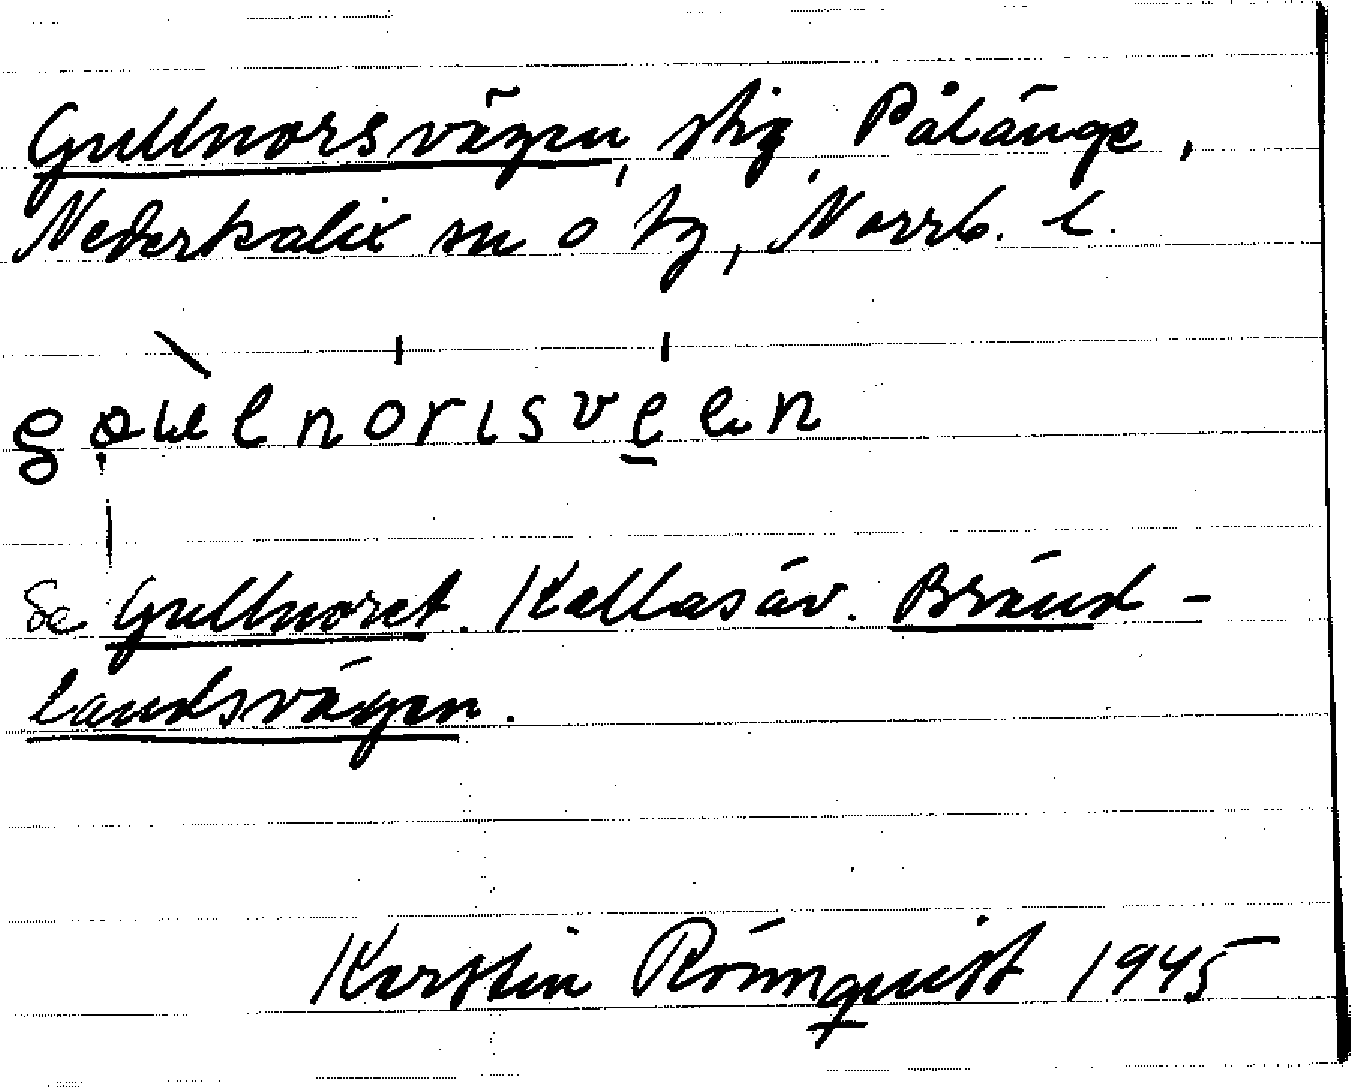 Gullnorsvägen, stig, Pålänge,
Nederkalix sn o tg, Norrb. l.
Se Gullnoret. Kallasäv. Bränd-
landsvägen.
Kerstin Rönnquist 1945